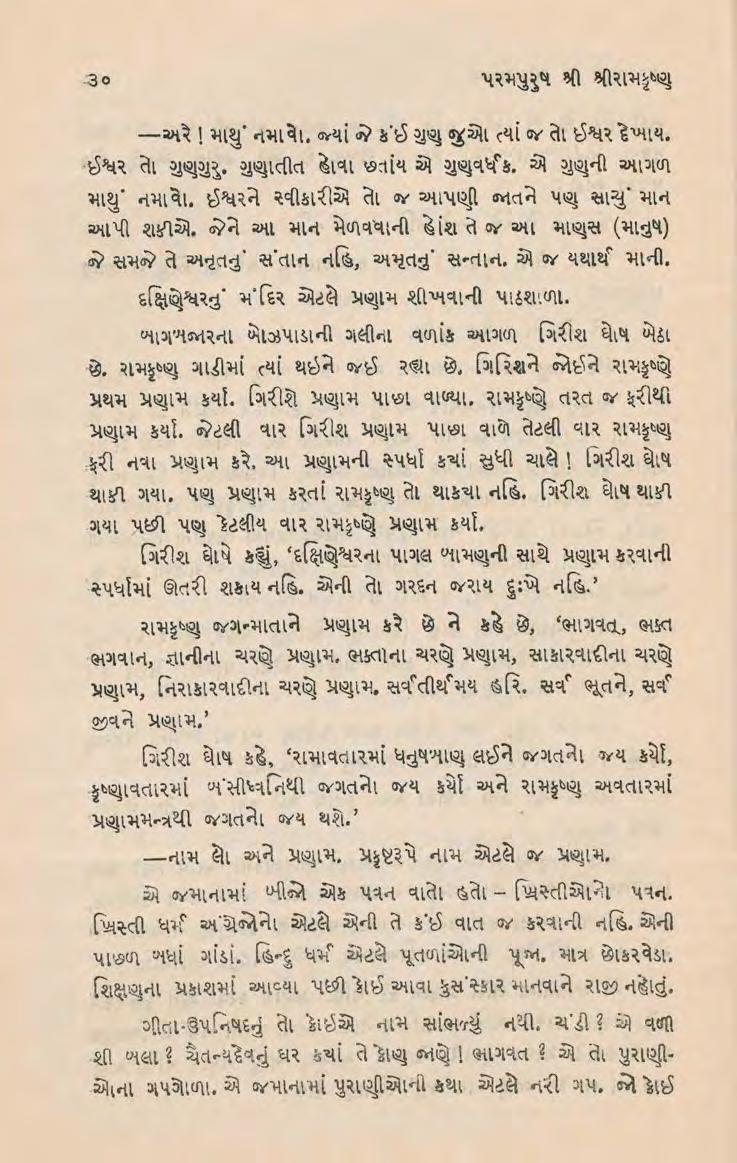 ૩૦ પરમપુરુષ શ્રી શ્રીરામકૃષ્ણ
—અરે ! માથું નમાવો. જ્યાં જે કંઈ ગુણ જુઓ ત્યાં જ તો ઈશ્વર દેખાય.
ઈશ્વર તો ગુણગુરુ. ગુણાતીત હોવા છતાંય એ ગુણવર્ધક. એ ગુણની આગળ
માથું નમાવો. ઈશ્વરને સ્વીકારીએ તો જ આપણી જાતને પણ સાચું માન
આપી શકીએ. જેને આ માન મેળવવાની હોંશ તે જ આ માણસ (માનુષ)
જે સમજે તે અનૃતનું સંતાન નહિ, અમૃતનું સન્તાન. એ જ યથાર્થ માની.
દક્ષિણેશ્વરનું મંદિર એટલે પ્રણામ શીખવાની પાઠશાળા.
બાગબજારના બોઝપાડાની ગલીના વળાંક આગળ ગિરીશ ઘોષ બેઠા
છે. રામકૃષ્ણ ગાડીમાં ત્યાં થઇને જઈ રહ્યા છે. ગિરિશને જોઈને રામકૃષ્ણે
પ્રથમ પ્રણામ કર્યા. ગિરીશે પ્રણામ પાછા વાળ્યા. રામકૃષ્ણે તરત જ ફરીથી
પ્રણામ કર્યા. જેટલી વાર ગિરીશ પ્રણામ પાછા વાળે તેટલી વાર રામકૃષ્ણ
ફરી નવા પ્રણામ કરે. આ પ્રણામની સ્પર્ધા કયાં સુધી ચાલે ! ગિરીશ ઘોષ
થાકી ગયા. પણ પ્રણામ કરતાં રામકૃષ્ણ તો થાકયા નહિ. ગિરીશ ઘોષ થાકી
ગયા પછી પણ કેટલીય વાર રામકૃષ્ણે પ્રણામ કર્યા.
ગિરીશ ઘોષે કહ્યું, ‘દક્ષિણેશ્વરના પાગલ બામણની સાથે પ્રણામ કરવાની
સ્પર્ધામાં ઊતરી શકાય નહિ. એની તો ગરદન જરાય દુઃખે નહિ.’
રામકૃષ્ણ જગન્માતાને પ્રણામ કરે છે ને કહે છે, ‘ભાગવત્, ભક્ત
ભગવાન, જ્ઞાનીના ચરણે પ્રણામ. ભક્તાના ચરણે પ્રણામ, સાકારવાદીના ચરણે
પ્રણામ, નિરાકારવાદીના ચરણે પ્રણામ. સર્વતીર્થમય હરિ. સર્વ ભૂતને, સર્વ
જીવને પ્રણામ.’
ગિરીશ ઘોષ કહે, ‘રામાવતારમાં ધનુષબાણ લઈને જગતનો જય કર્યો,
કૃષ્ણાવતારમાં બંસીધ્વનિથી જગતનો જય કર્યો અને રામકૃષ્ણ અવતારમાં
પ્રણામમન્ત્રથી જગતનો જય થશે.’
—નામ લો અને પ્રણામ. પ્રકૃષ્ટરૂપે નામ એટલે જ પ્રણામ.
એ જમાનામાં બીજો એક પવન વાતો હતો – ખ્રિસ્તીઓનો પવન.
ખ્રિસ્તી ધર્મ અંગ્રેજોનો એટલે એની તે કંઈ વાત જ કરવાની નહિ. એની
પાછળ બધાં ગાંડાં. હિન્દુ ધર્મ એટલે પૂતળાંઓની પૂજા. માત્ર છોકરવેડા.
શિક્ષણના પ્રકાશમાં આવ્યા પછી કોઈ આવા કુસંસ્કાર માનવાને રાજી નહોતું.
ગીતા-ઉપનિષદનું તો કોઇએ નામ સાંભળ્યું નથી. ચંડી ? એ વળી
શી બલા ? ચૈતન્યદેવનું ઘર કયાં તે કોણ જાણે ! ભાગવત ? એ તો પુરાણી-
ઓના ગપગોળા. એ જમાનામાં પુરાણીઓની કથા એટલે નરી ગપ. જો કોઈ